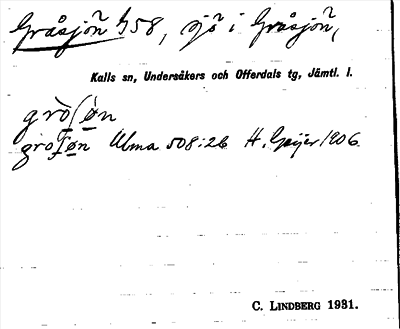 Gråsjön 58, sjö i Gråsjön,
Kalls sn, Undersåkers och Offerdals tg, Jämtl. l.
grò̱ʃø̱̀n
gro̱ʃø̱n Ulma 508:26 H. Geijer 1906.
C. LINDBERG 1931.